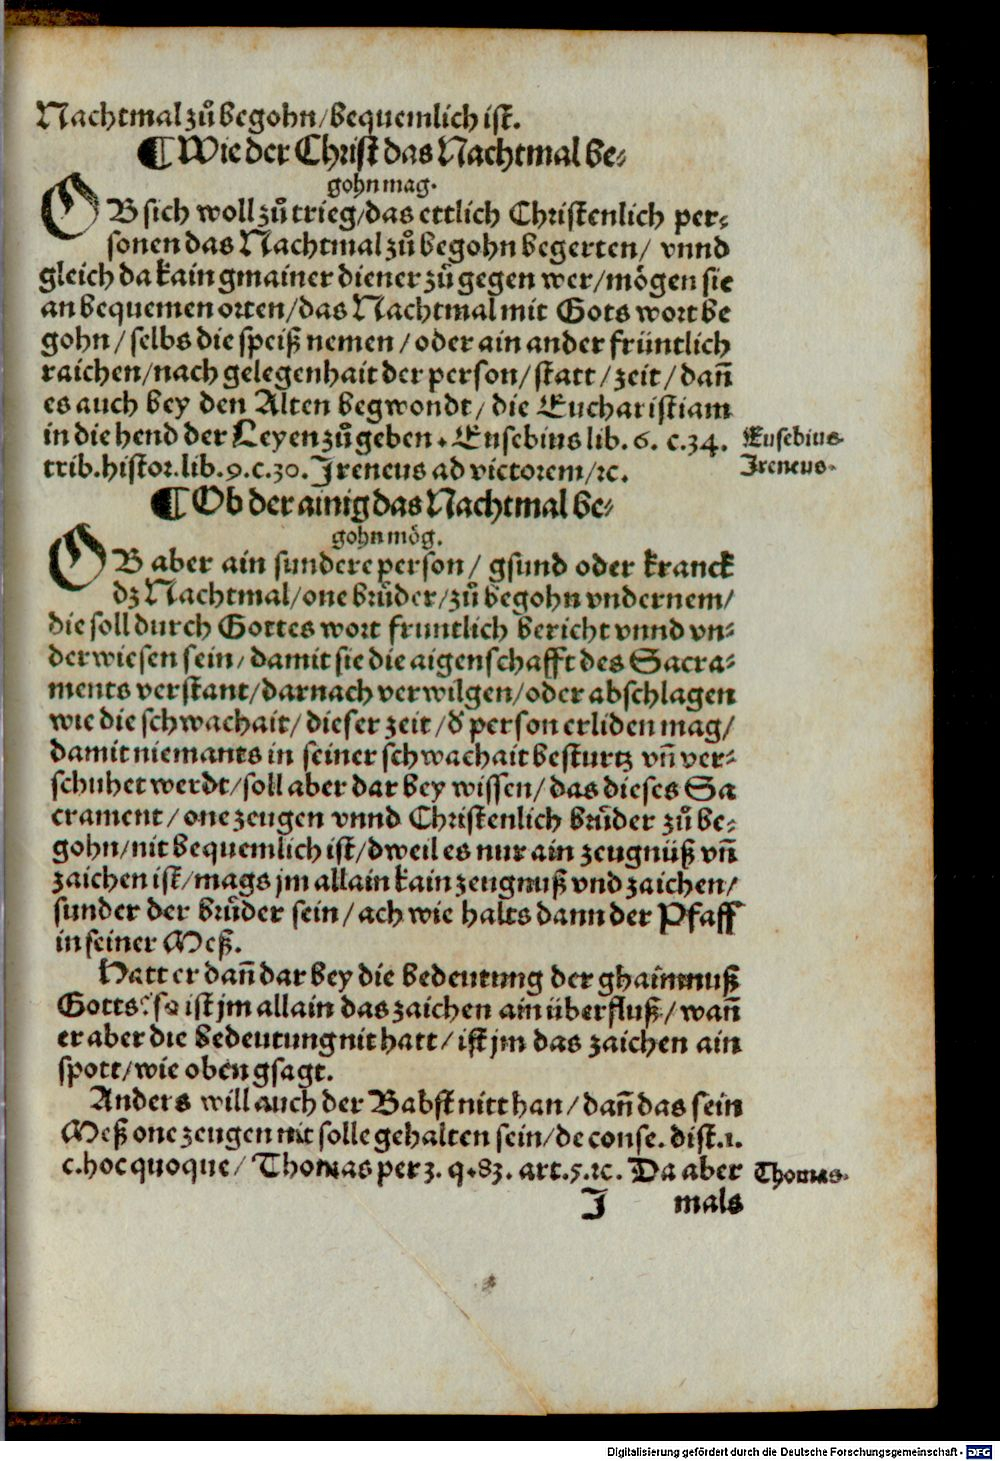 Nachtmal zů begohn/bequemlich ist.
¶ Wie der Christ das Nachtmal be⸗
gohn mag.
OB sich woll zů trieg/das ettlich Christenlich per⸗
sonen das Nachtmal zů begohn begerten/ vnnd
gleich da kain gmainer diener zů gegen wer/mögen sie
an bequemen orten/das Nachtmal mit Gots wort be
gohn/selbs die speiß nemen/oder ain ander früntlich
raichen/nach gelegenhait der person/statt/zeit/dañ
es auch bey den Alten begwondt/die Eucharistiam
in die hend der Leyen zů geben. Eusebius lib. 6. c.34.
trib.histor.lib.9.c.30. Jreneus ad victorem/ꝛc.
Eusebius.
Jreneus.
¶ Ob der ainig das Nachtmal be⸗
gohn mög.
OB aber ain sundere person/ gsund oder kranck
dz Nachtmal/one brůder/zů begohn vndernem/
die soll durch Gottes wort fruntlich bericht vnnd vn⸗
derwiesen sein/damit sie die aigenschafft des Sacra⸗
ments verstant/darnach verwilgen/oder abschlagen
wie die schwachait/dieser zeit/d̕ person erliden mag/
damit niemants in seiner schwachait besturtz vñ ver⸗
schuhet werdt/soll aber dar bey wissen/das dieses Sa
crament/one zeugen vnnd Christenlich brůder zů be⸗
gohn/nit bequemlich ist/dweil es nur ain zeugnüß vñ
zaichen ist/mags jm allain kain zeugnuß vnd zaichen/
sunder der brůder sein/ach wie halts dann der Pfaff
in seiner Meß.
Hatt er dañ dar bey die bedeutung der ghaimnuß
Gotts: so ist jm allain das zaichen ain überfluß/wañ
er aber die bedeutung nit hatt/ist jm das zaichen ain
spott/wie oben gsagt.
Anders will auch der Babst nitt han/dañ das sein
Meß one zeugen nit solle gehalten sein/de conse. dist.1.
c.hoc quoque/ Thomas per 3. q.83. art.5.ꝛc. Da aber
Thomas.
J mals
Digitalisierung gefördert durch die Deutsche Forschungsgemeinschaft - DFG